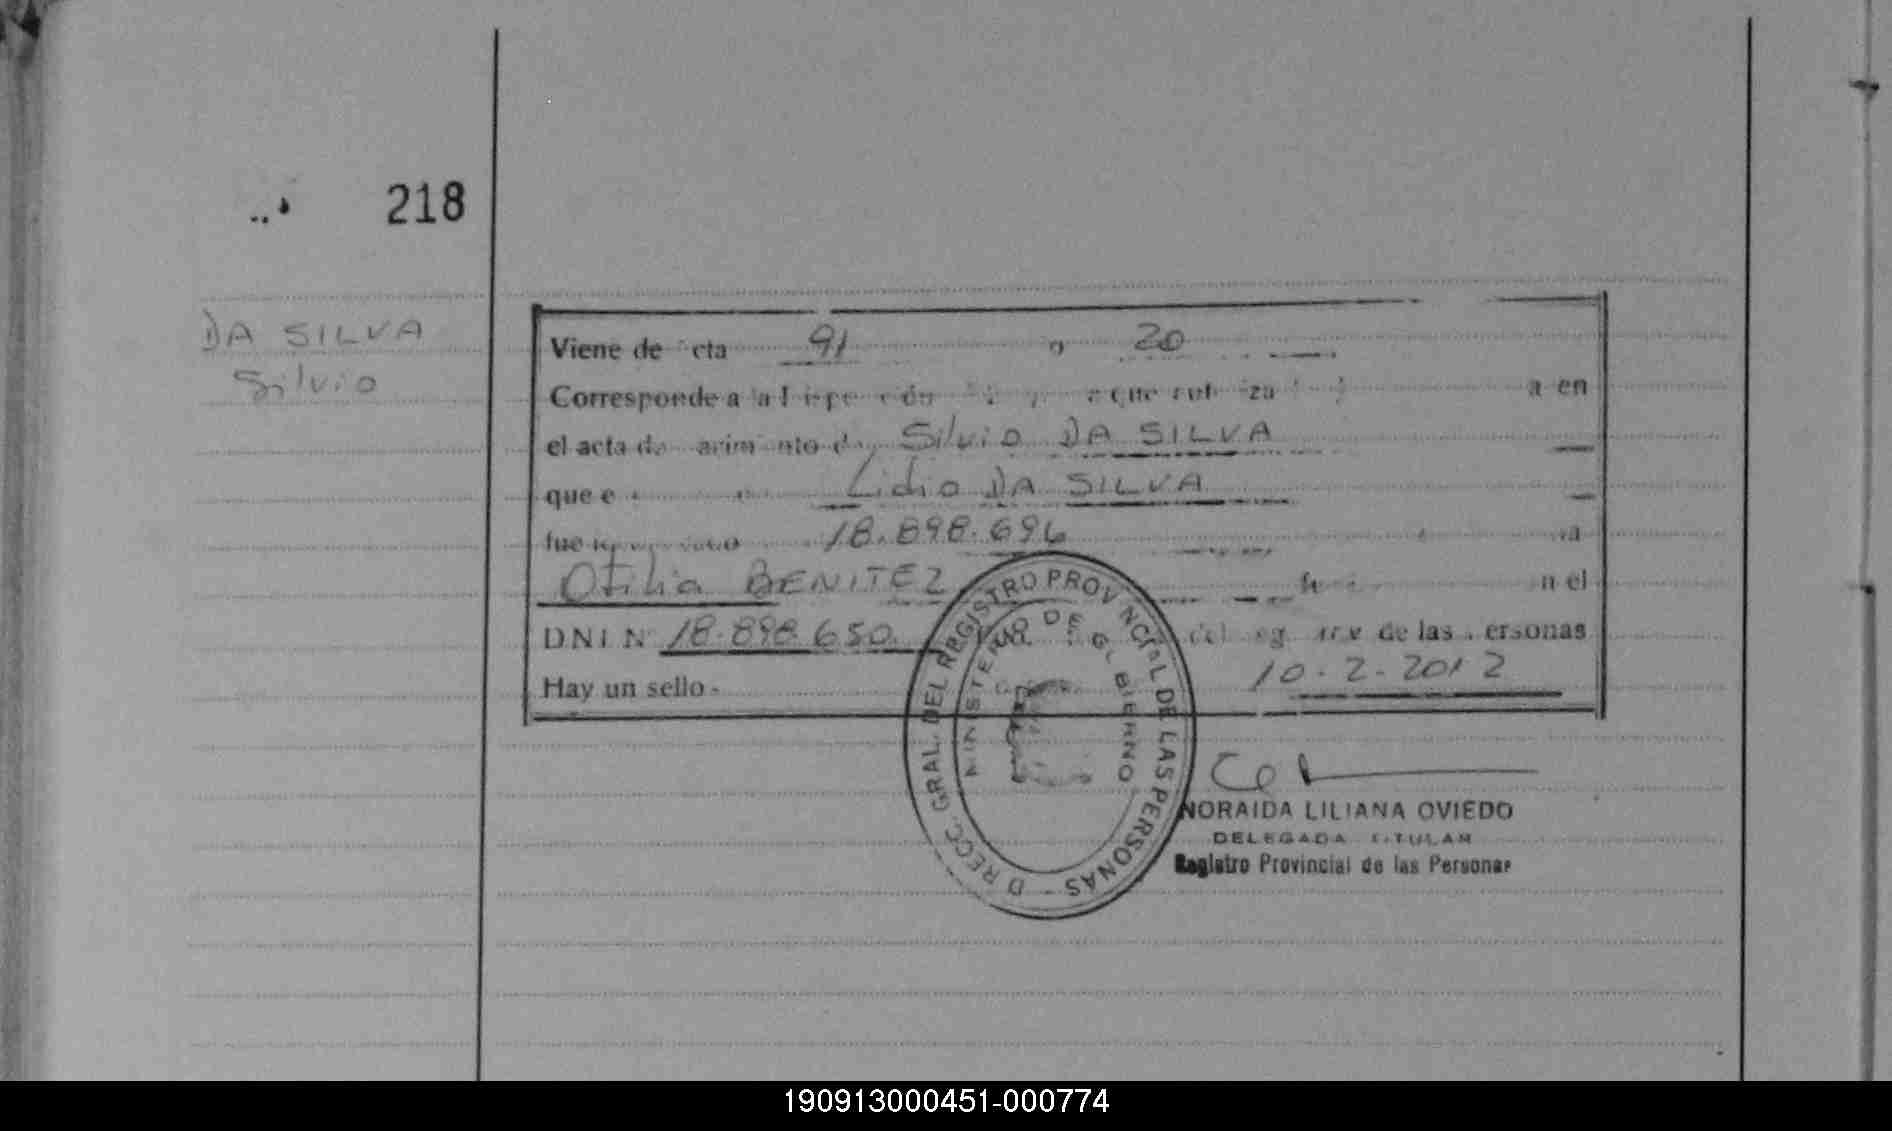 218
DA SILVA
Silvio
Viene de cta 91 20
Corresponde a a en
el acta de Silvio DA SILVA
que e Lidio DA SILVA
fue 18.898.696
Otilia BENITEZ n el
DNI N 18.898.650 de las ersonas
Hay un sello - 10-2-2012
DIRECC. GRAL. DEL REGISTRO PROVINCIAL DE LAS PERSONAS -
MINISTERIO DE GOBIERNO
NORAIDA LILIANA OVIEDO
DELEGADA TITULAR
Registro Provincial de las Personas
190913000451-000774